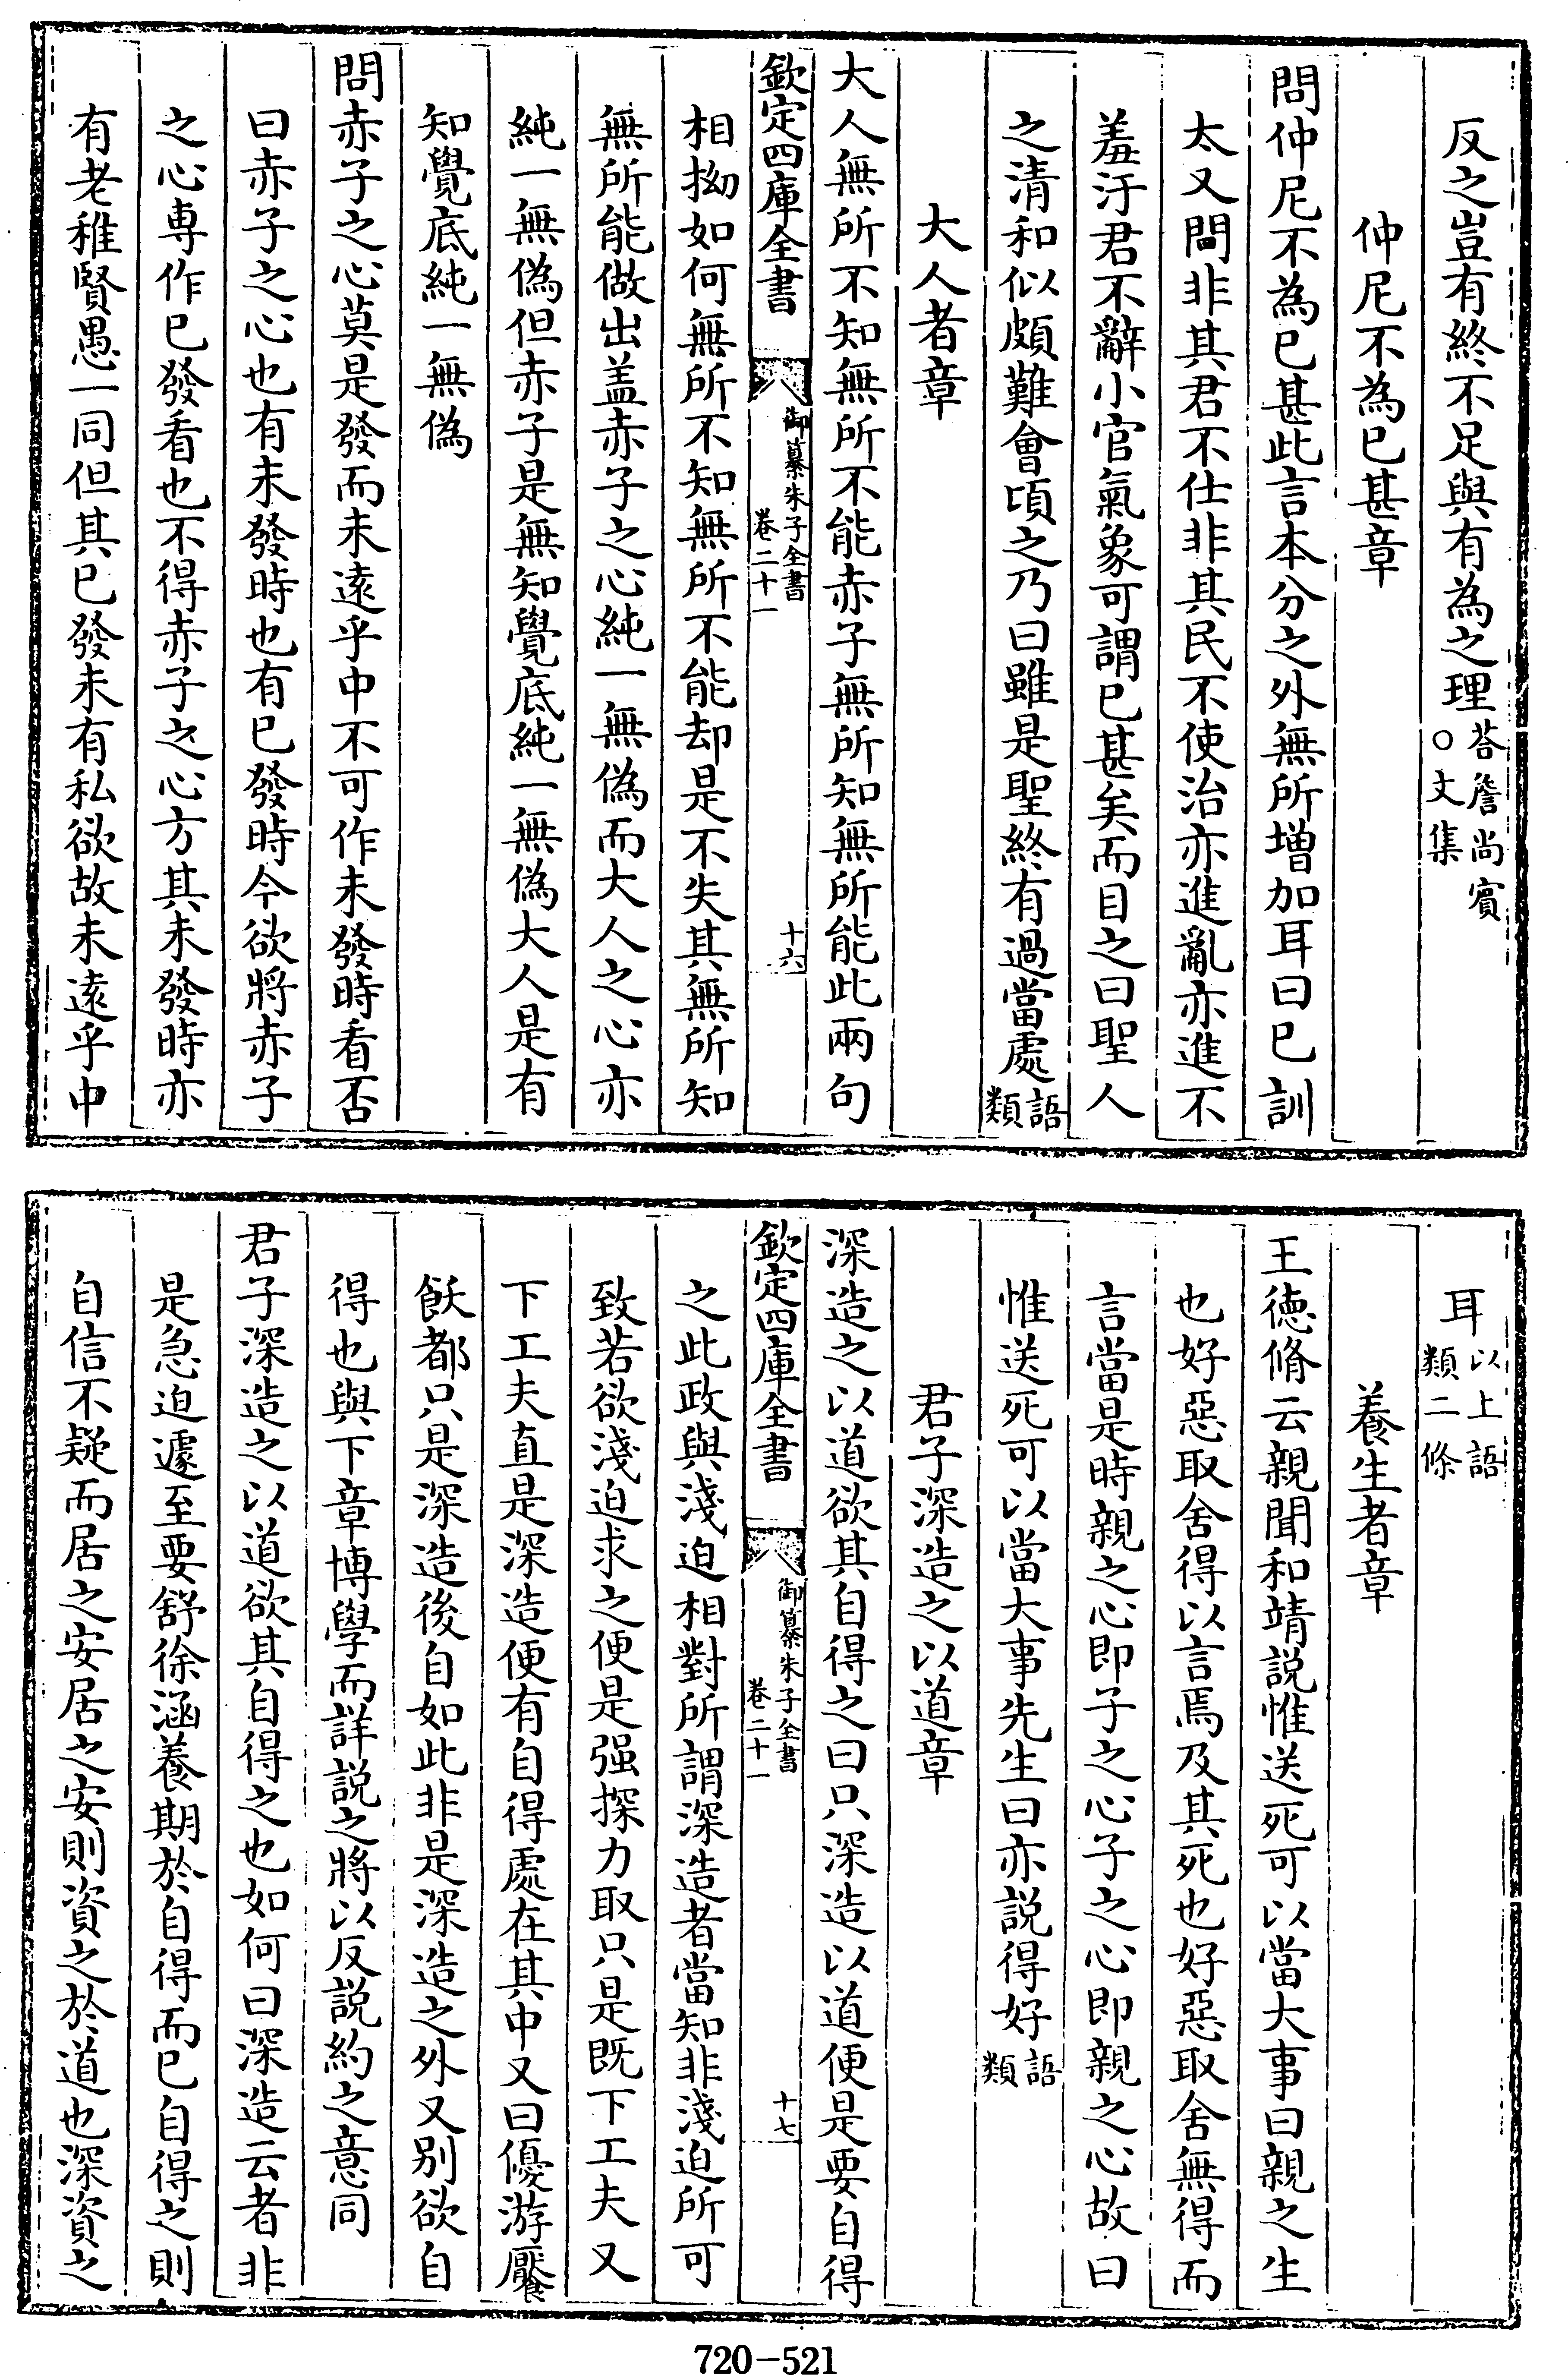 反之豈有終不足與有為之理荅詹尚賓○文集
仲尼不為已甚章
問仲尼不為已甚此言本分之外無所增加耳曰已訓
太又問非其君不仕非其民不使治亦進亂亦進不
羞汙君不辭小官氣象可謂已甚矣而目之曰聖人
之清和似頗難會頃之乃曰雖是聖終有過當處語類
大人者章
大人無所不知無所不能赤子無所知無所能此兩句
欽定四庫全書 御纂朱子全書 卷二十一 十六
相拗如何無所不知無所不能却是不失其無所知
無所能做出盖赤子之心純一無偽而大人之心亦
純一無偽但赤子是無知覺底純一無偽大人是有
知覺底純一無偽
問赤子之心莫是發而未遠乎中不可作未發時看否
曰赤子之心也有未發時也有已發時今欲將赤子
之心專作已發看也不得赤子之心方其未發時亦
有老稚賢愚一同但其已發未有私欲故未遠乎中
耳以上語類二條
養生者章
王德脩云親聞和靖説惟送死可以當大事曰親之生
也好惡取舍得以言焉及其死也好惡取舍無得而
言當是時親之心即子之心子之心即親之心故曰
惟送死可以當大事先生曰亦説得好語類
君子深造之以道章
深造之以道欲其自得之曰只深造以道便是要自得
欽定四庫全書 御纂朱子全書 卷二十一 十七
之此政與淺迫相對所謂深造者當知非淺迫所可
致若欲淺迫求之便是强探力取只是既下工夫又
下工夫直是深造便有自得處在其中又曰優游饜
飫都只是深造後自如此非是深造之外又别欲自
得也與下章博學而詳説之將以反説約之意同
君子深造之以道欲其自得之也如何曰深造云者非
是急迫遽至要舒徐涵養期於自得而已自得之則
自信不疑而居之安居之安則資之於道也深資之
720-521